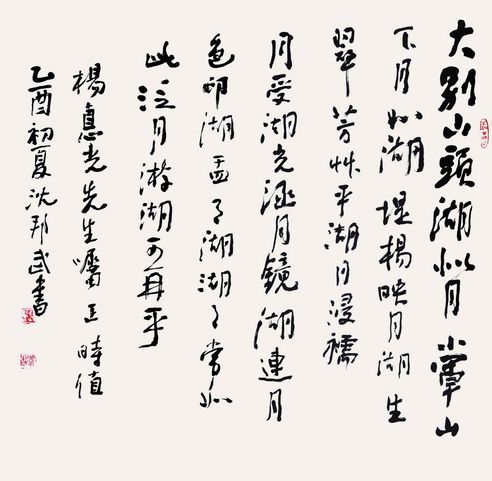 大别山頭湖似月小掌山
下月如湖堤楊映月湖生
翠芳艸平湖月浸襦
月受湖光涵月鏡湖連月
色印湖盂月湖湖月常如
此泛月游湖可再乎
楊光先生囑正時值
乙酉初夏沈邦武書